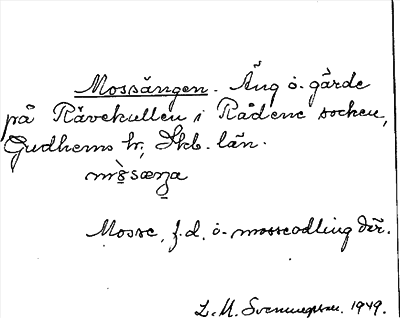 Mossängen. Äng o. gärde
på Rävekullen i Rådene socken,
Gudhems hr, Skb. län.
Mosse, f.d. o. mosseodling där.
L. M. Svenungsson. 1949.